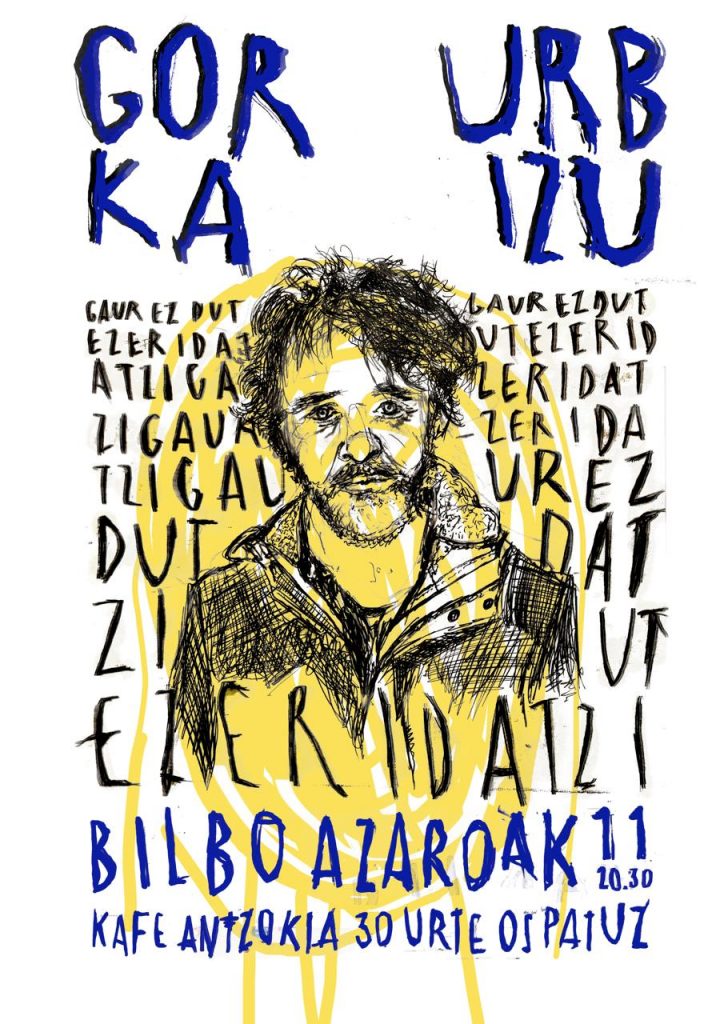 GOR URB
KA IZU
GAUR EZ DUT GAUREZDUT
EZERIDAT UTEZERID
ATZIGA ZERIDAT
ZIGAUR ZERIDA
TZIGAU UREZ
DUT DAT
ZI UT
EZERIDATZI
BILBO AZAROAK 11
20.30
KAFE ANTZOKIA 30 URTE OSPATUZ